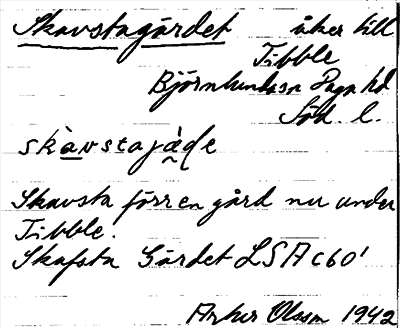 Skavstagärdet åker till
Tibble
Björnlunda sn Daga hd
Söd. l.
skàvstajä̀ɖe
Skavsta förr en gård nu under
Tibble.
Skafsta Gärdet LSA C60¹
Artur Olsson 1942